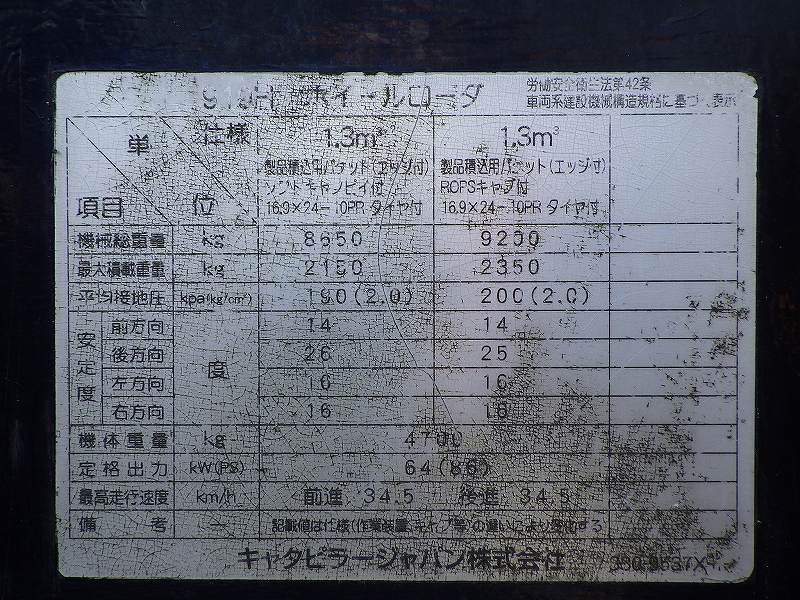 ホイールローダ
労働安全衛生法第42条
車両系建設機械構造規格に基づく表示
単 仕様 1.3m³ 1.3m³
製品積込用バケット(エッジ付) 製品積込用バケット(エッジ付)
キャノピイ付 ROPSキャブ付
項目 位 16.9×24-10PR タイヤ付 16.9×24-10PR タイヤ付
機械総重量 kg 8650 9200
最大積載重量 kg 2350
平均接地圧 kpa(kg/cm²) 190(2.0) 200(2.0)
安定度 前方向 度 14 14
後方向 26 25
左方向 16 16
右方向 16 16
機体重量 kg
定格出力 kW(PS) 64
最高走行速度 km/h 前進 34.5 後進 34.5
備考 — 記載値は仕様(作業装置、キャブ等)の違いにより変化する
キャタピラージャパン株式会社